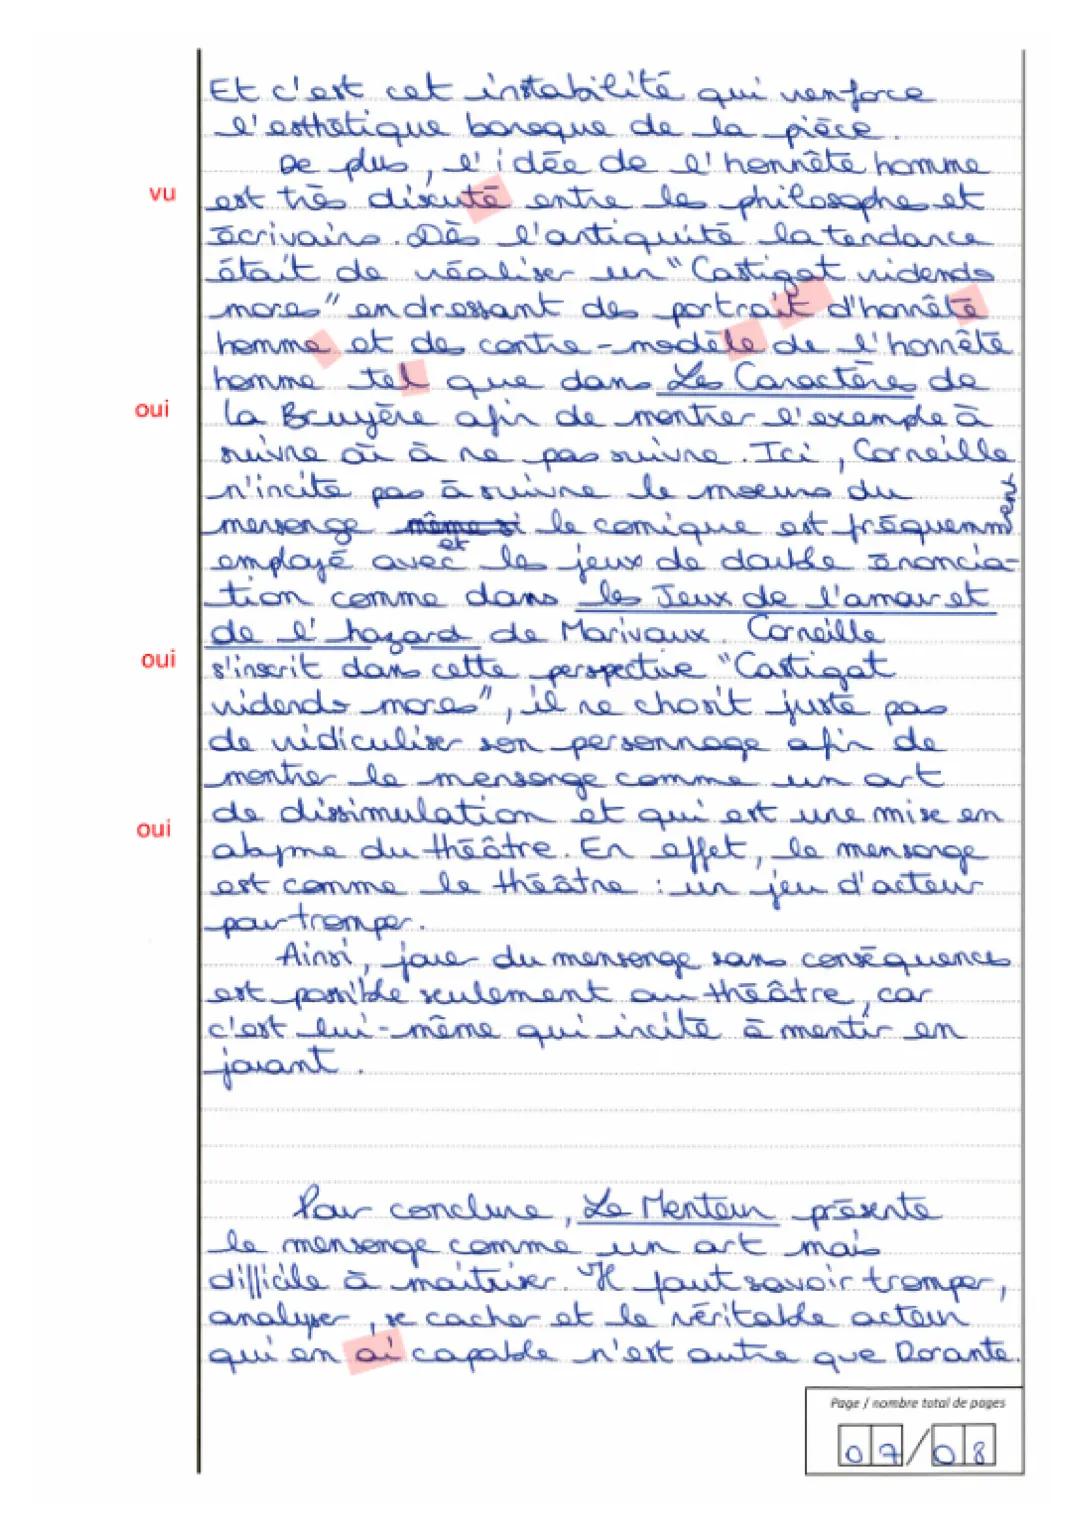 Et c'est cet instabilité qui renforce
l'esthétique baroque de la pièce.
De plus, l'idée de l'honnête homme
vu
est très discuté entre les philosophes et
écrivains. Dès l'antiquité la tendance
était de réaliser un "Castigat ridendo
mores" en dressant des portrait d'honnête
homme et des contre-modèle de l'honnête
homme tel que dans Les Caractères de
oui
la Bruyère afin de montrer l'exemple à
suivre ou à ne pas suivre. Ici, Corneille
n'incite pas à suivre le moeurs du
mensonge même si le comique est fréquemment
employé avec et les jeux de double énoncia-
tion comme dans les Jeux de l'amour et
de l'hazard de Marivaux. Corneille
oui
s'inscrit dans cette perspective "Castigat
ridendo mores", il ne chosit juste pas
de ridiculiser son personnage afin de
montrer le mensonge comme un art
de dissimulation et qui est une mise en
oui
abyme du théâtre. En effet, le mensonge
est comme le théâtre : un jeu d'acteur
pour tromper.
Ainsi, jouer du mensonge sans conséquences
est possible seulement au théâtre, car
c'est lui-même qui incite à mentir en
jouant.
Pour conclure, Le Menteur présente
le mensonge comme un art mais
difficile à maîtriser. Il faut savoir tromper,
analyser, se cacher et le véritable acteur
qui en ai capable n'est autre que Dorante.
Page / nombre total de pages
07/08